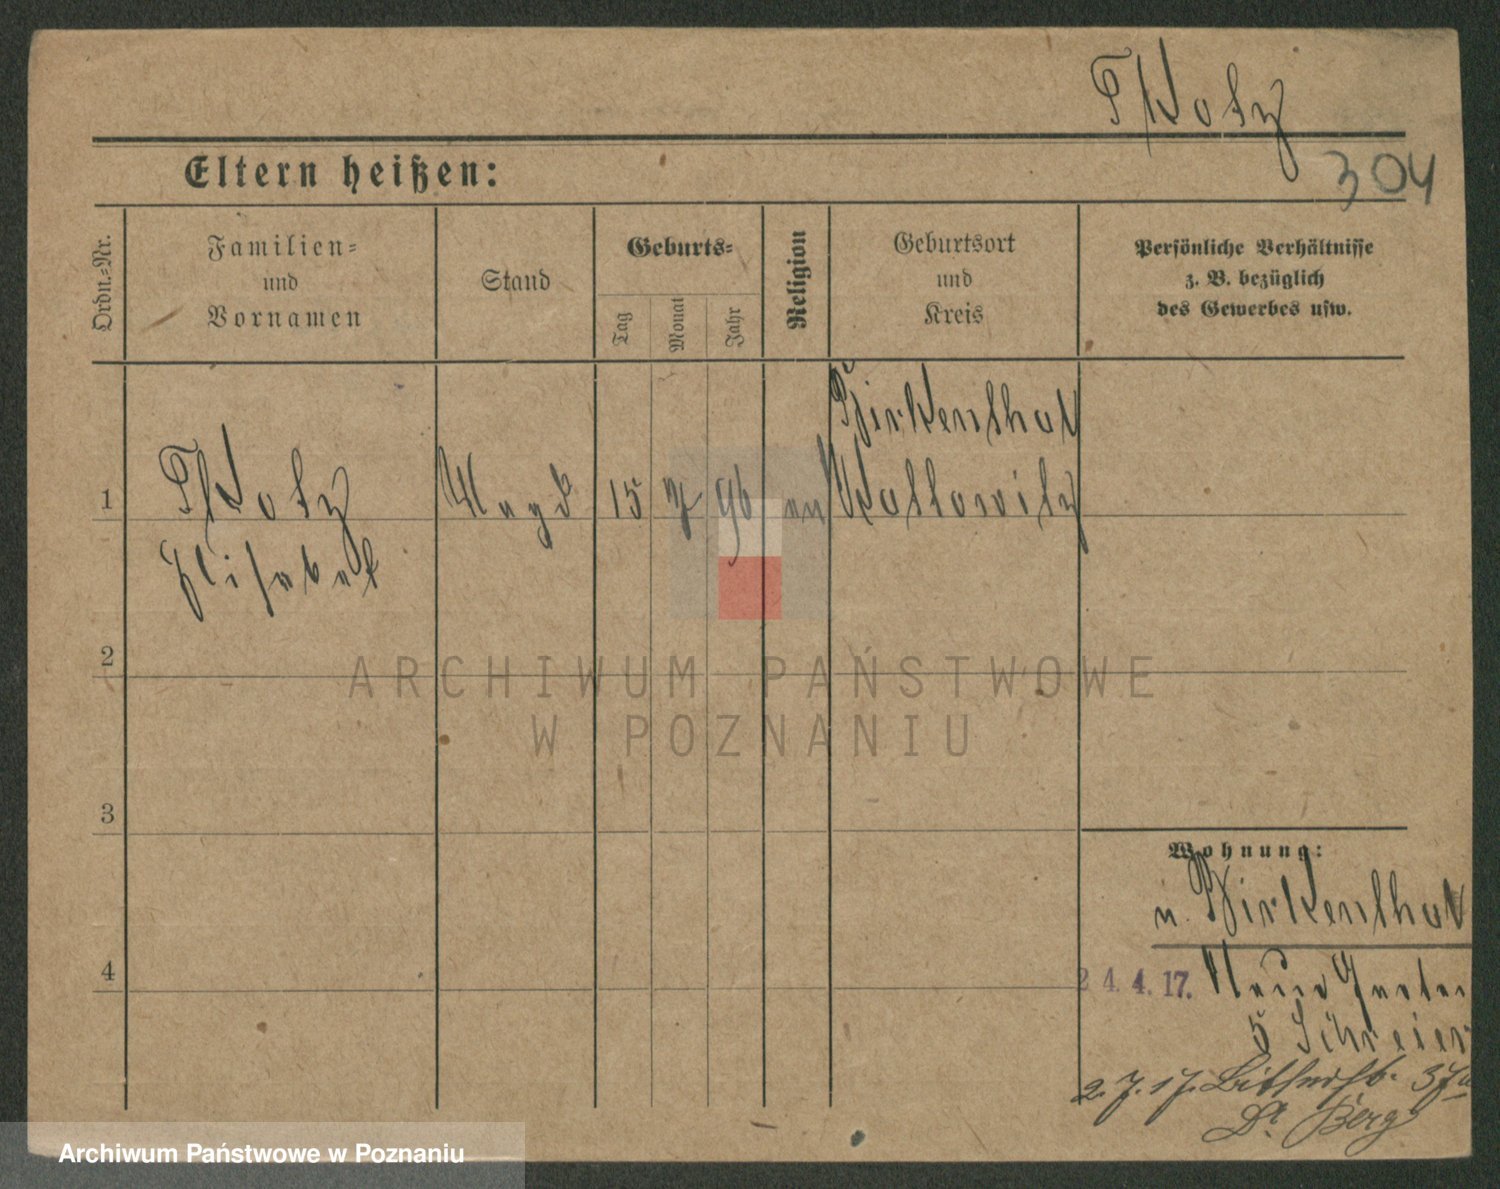 Plotz
304
Eltern heißen:
Ordn.-Nr.
Familien-
und
Vornamen
Stand
Geburts-
Tag
Monat
Jahr
Religion
Geburtsort
und
Kreis
Persönliche Verhältnisse
z. B. bezüglich
des Gewerbes usw.
Birkenthal
1 Plotz Magd 15 7 96 ev Kattowitz
Elisabet
2
3
4
ARCHIWUM PAŃSTWOWE
W POZNANIU
Wohnung:
n. Birkenthal
24.4.17. Neue Garten
5 Schreier
2.7.17.
Dr. Berg
Archiwum Państwowe w Poznaniu